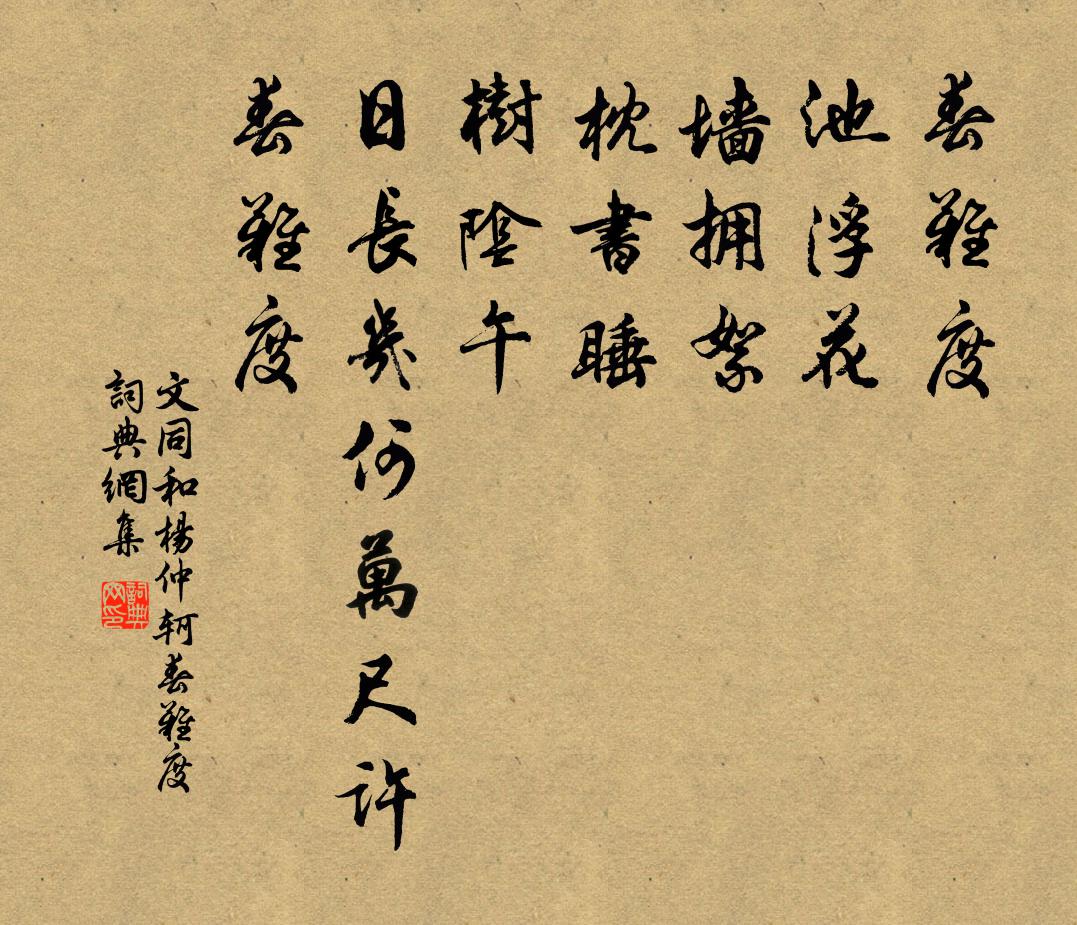 春難度
池浮花
墙拥絮
枕書睡
樹陰午
日長幾何萬尺許
春難度
文同和楊仲軻春難度
詞典網集
詞典网印